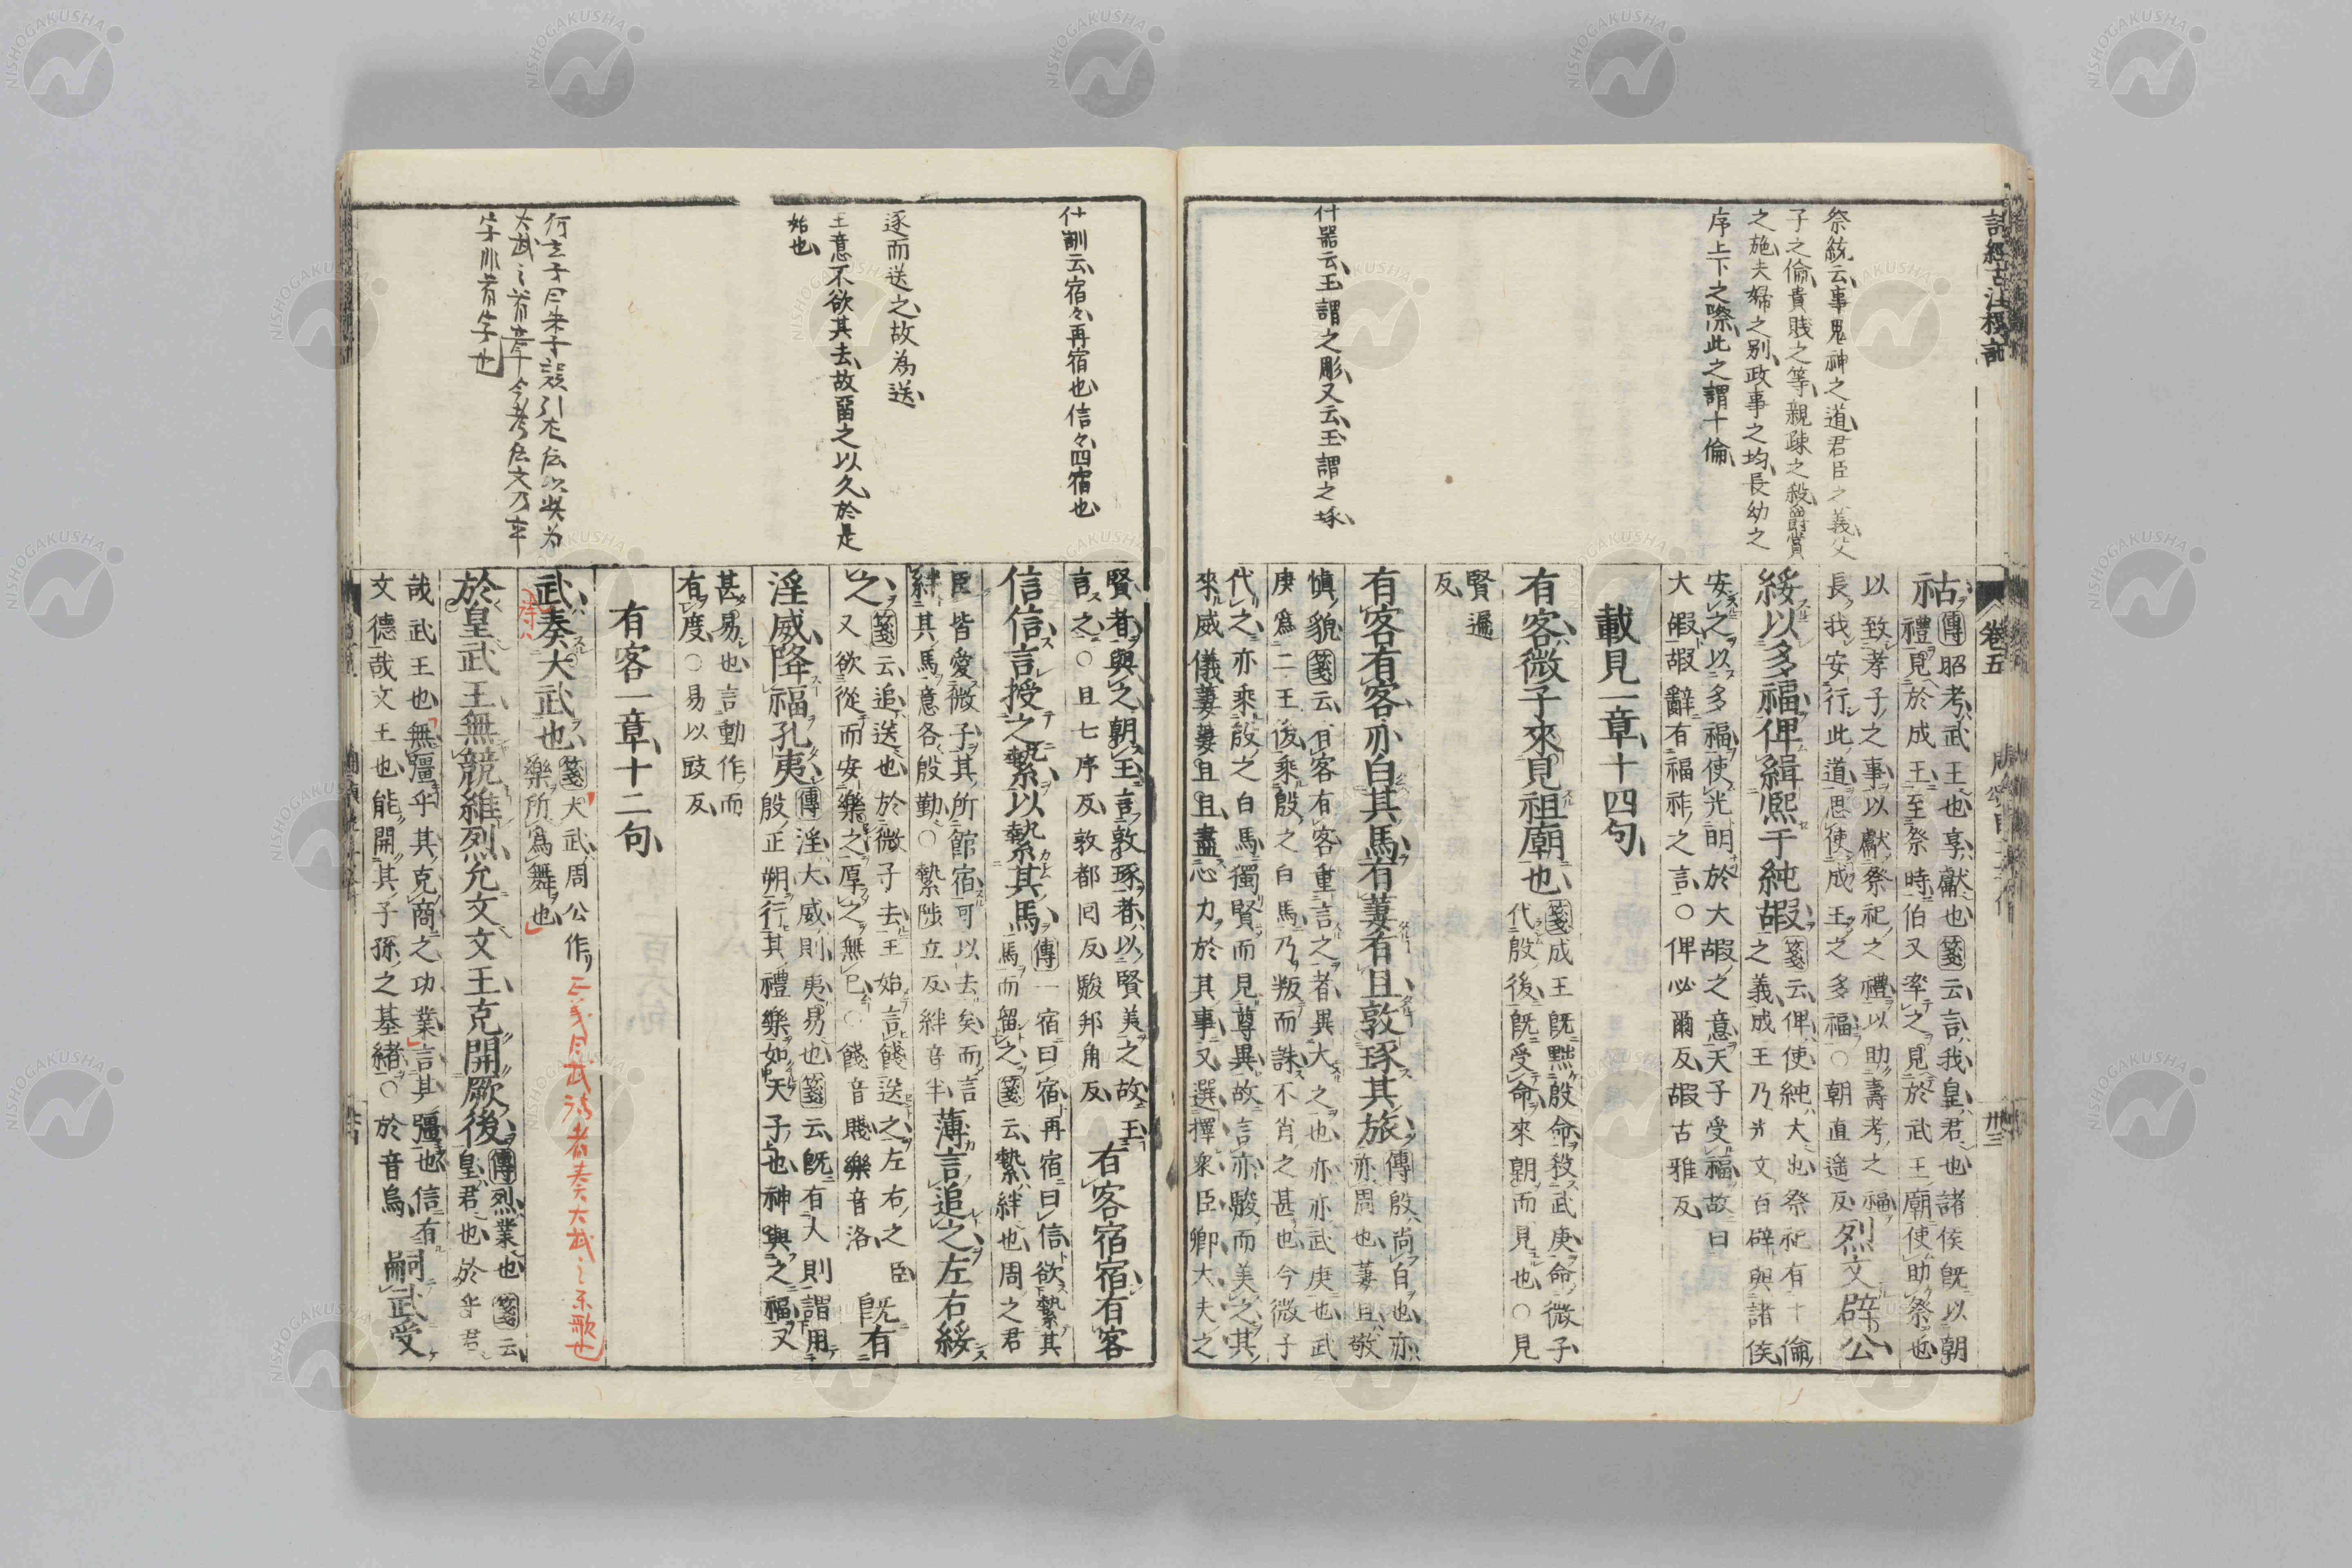 詩經古注標記
卷五
卅三
祭統云事鬼神之道君臣之義父
子之倫貴賤之等親疎之殺爵賞
之施夫婦之別政事之均長幼之
序上下之際此之謂十倫
什器云玉謂之彫又云玉謂之琢
祜傳昭考武王也享獻也箋云言我皇君也諸侯既以朝
禮見於成王至祭時伯又率之見於武王廟使助祭也
以致孝子之事以獻祭祀之禮以助壽考之福
長我安行此道思使成王之多福○朝直遥反烈文辟公
綏以多福俾緝熙于純嘏箋云俾使純大也祭祀有十倫
之義成王乃光文百辟與諸侯
安之以多福使光明於大嘏之意天子受福故曰
大嘏嘏辭有福祚之言○俾必爾反嘏古雅反
載見一章十四句
有客微子來見祖廟也箋成王既黜殷命殺武庚命微子
代殷後既受命來朝而見也○見
賢遍
反
有客有客亦白其馬有萋有且敦琢其旅傳殷尚白也亦
亦周也萋且敬
愼貌箋云有客有客重言之者異大之也亦亦武庚也武
庚爲二王後乘殷之白馬乃叛而誅不肖之甚也今微子
代之亦乘殷之白馬獨賢而見尊異故言亦駁而美之其
來威儀萋萋且且盡心力於其事又選擇衆臣卿大夫之
什訓云宿々再宿也信々四宿也
逐而送之故為送
王意不欲其去故畱之以久於是
始也
賢者與之朝王言敦琢者以賢美之故玉
言之○且七序反敦都回反駁邦角反有客宿宿有客
信信言授之縶以縶其馬傳一宿曰宿再宿曰信欲縶其
馬而留之箋云縶絆也周之君
臣皆愛微子其所館宿可以去矣而言
絆其馬意各殷勤○縶陟立反絆音半薄言追之左右綏
之箋云追送也於微子去王始言餞送之左右之臣
又欲從而安樂之厚之無已○餞音賤樂音洛既有
淫威降福孔夷傳淫大威則夷易也箋云既有大則謂用
殷正朔行其禮樂如天子也神與之福又
甚易也言動作而
有度○易以豉反
有客一章十二句
武奏大武也箋大武周公作
樂所爲舞也
正義曰武詩者奏大武之樂歌也
於皇武王無競維烈允文文王克開厥後傳烈業也箋云
皇君也於乎君
哉武王也無彊乎其克商之功業言其彊也信有
文德哉文王也能開其子孫之基緒○於音烏嗣武受